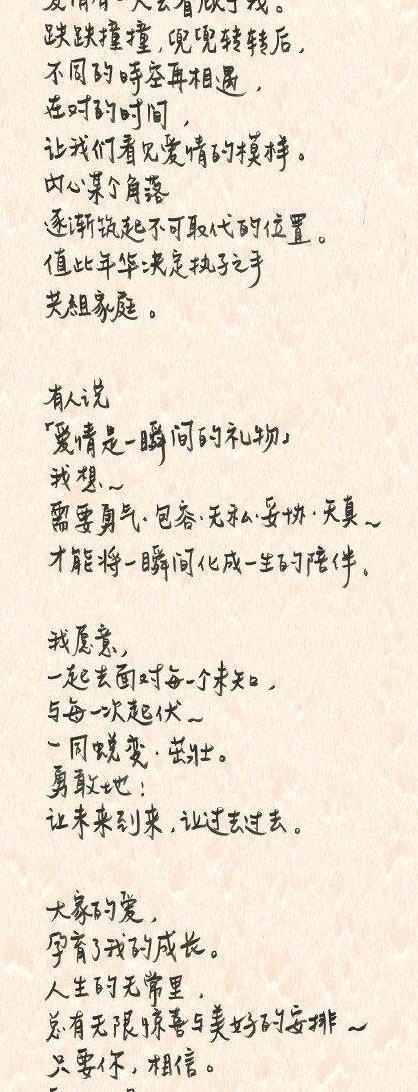 跌跌撞撞,兜兜转转后,
不同的時空再相遇,
在对的时间,
让我们看见爱情的模样。
内心某个角落
逐渐筑起不可取代的位置。
值此年华决定执子之手
共組家庭。
有人说
「爱情是一瞬间的礼物」
我想~
需要勇气·包容·无私·妥协·天真~
才能将一瞬间化成一生的陪伴。
我愿意,
一起去面对每一个未知,
与每一次起伏~
一同蜕变·茁壮。
勇敢地:
让未来到来,让过去过去。
大家的爱,
孕育了我的成长。
人生的无常里,
总有无限惊喜与美好的安排~
只要你,相信。